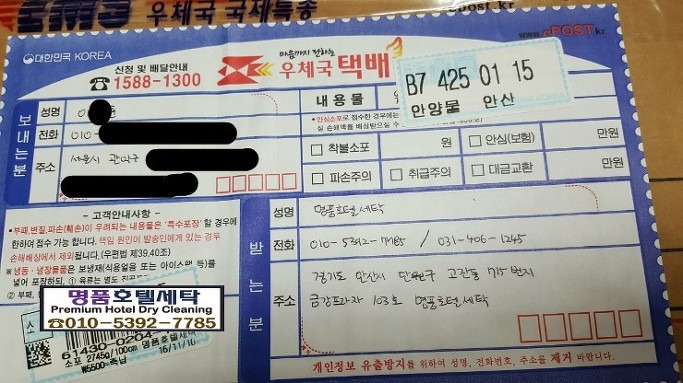 EMS 우체국 국제특송
ePOST.kr
대한민국 KOREA
www.ePOST.kr
신청 및 배달안내
☎1588-1300
마음까지 전하는
우체국 택배
B7 425 01 15
안양물 안산
보내는분
성명
전화 010-
주소 서울시 관악구
내용물
• 안심소포로 접수한 경우에는
실 손해액을 배상받으실 수
□ 착불소포 원 □ 안심(보험) 만원
□ 파손주의 □ 취급주의 □ 대금교환 만원
- 고객안내사항 -
• 부패, 변질, 파손(훼손)이 우려되는 내용물은 '특수포장'할 경우에
한하여 접수 가능 합니다. 책임 원인이 발송인에게 있는 경우
손해배상에서 제외됩니다.(우편법 제39,40조)
※ 냉동·냉장물품은 보냉재(식용얼음 또는 아이스팩 등)를
넣어 포장하되,
• 2. 부패,
받는분
성명 명품호텔세탁
전화 010-5392-7785 / 031-406-1245
주소 경기도 안산시 단원구 고잔동 715번지
금강프라자 103호 명품호텔세탁
개인정보 유출방지를 위하여 성명, 전화번호, 주소를 제거 바랍니다.
명품호텔세탁
Premium Hotel Dry Cleaning
☎010-5392-7785
61430-0204-
소포 2745g/100cm 명품호텔세탁
₩5500=즉납 16/11/10